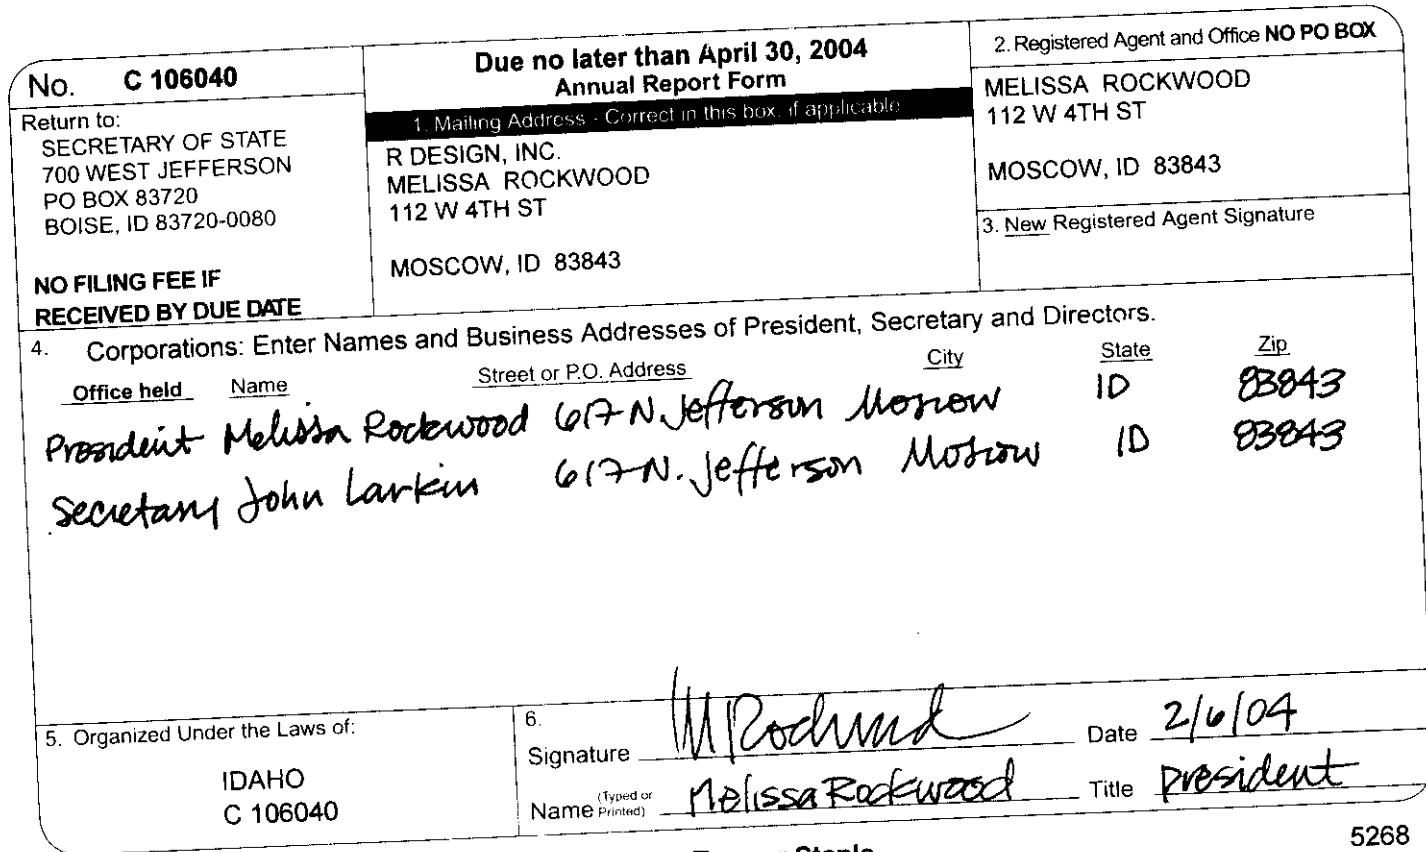 No. C 106040
Return to:
SECRETARY OF STATE
700 WEST JEFFERSON
PO BOX 83720
BOISE, ID 83720-0080
NO FILING FEE IF
RECEIVED BY DUE DATE
Due no later than April 30, 2004
Annual Report Form
1. Mailing Address - Correct in this box, if applicable
R DESIGN, INC.
MELISSA ROCKWOOD
112 W 4TH ST
MOSCOW, ID 83843
2. Registered Agent and Office NO PO BOX
MELISSA ROCKWOOD
112 W 4TH ST
MOSCOW, ID 83843
3. New Registered Agent Signature
4. Corporations: Enter Names and Business Addresses of President, Secretary and Directors.
Office held Name Street or P.O. Address City State Zip
President Melissa Rockwood 617 N. Jefferson Moscow ID 83843
Secretary John Larkin 617 N. Jefferson Moscow ID 83843
5. Organized Under the Laws of:
IDAHO
C 106040
6.
Signature M Rockwood Date 2/6/04
Name (Typed or Printed) Melissa Rockwood Title president
5268